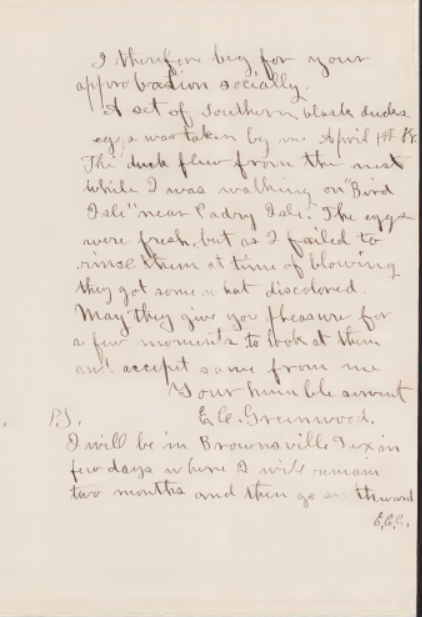 I therefore beg for your
approbation socially.
A set of Southern black ducks
eggs was taken by me April 1st 88.
The duck flew from the nest
while I was walking on "Bird
Isle" near Padry Isle." The eggs
were fresh, but as I failed to
rinse them at time of blowing
they got some what discolored.
May they give you pleasure for
a few moments to look at them
and accept same from me
Your humble servent
E. C. Greenwood.
P.S.
I will be in Brownsville Tex in
few days where I will remain
two months and then go southward
E.C.G.